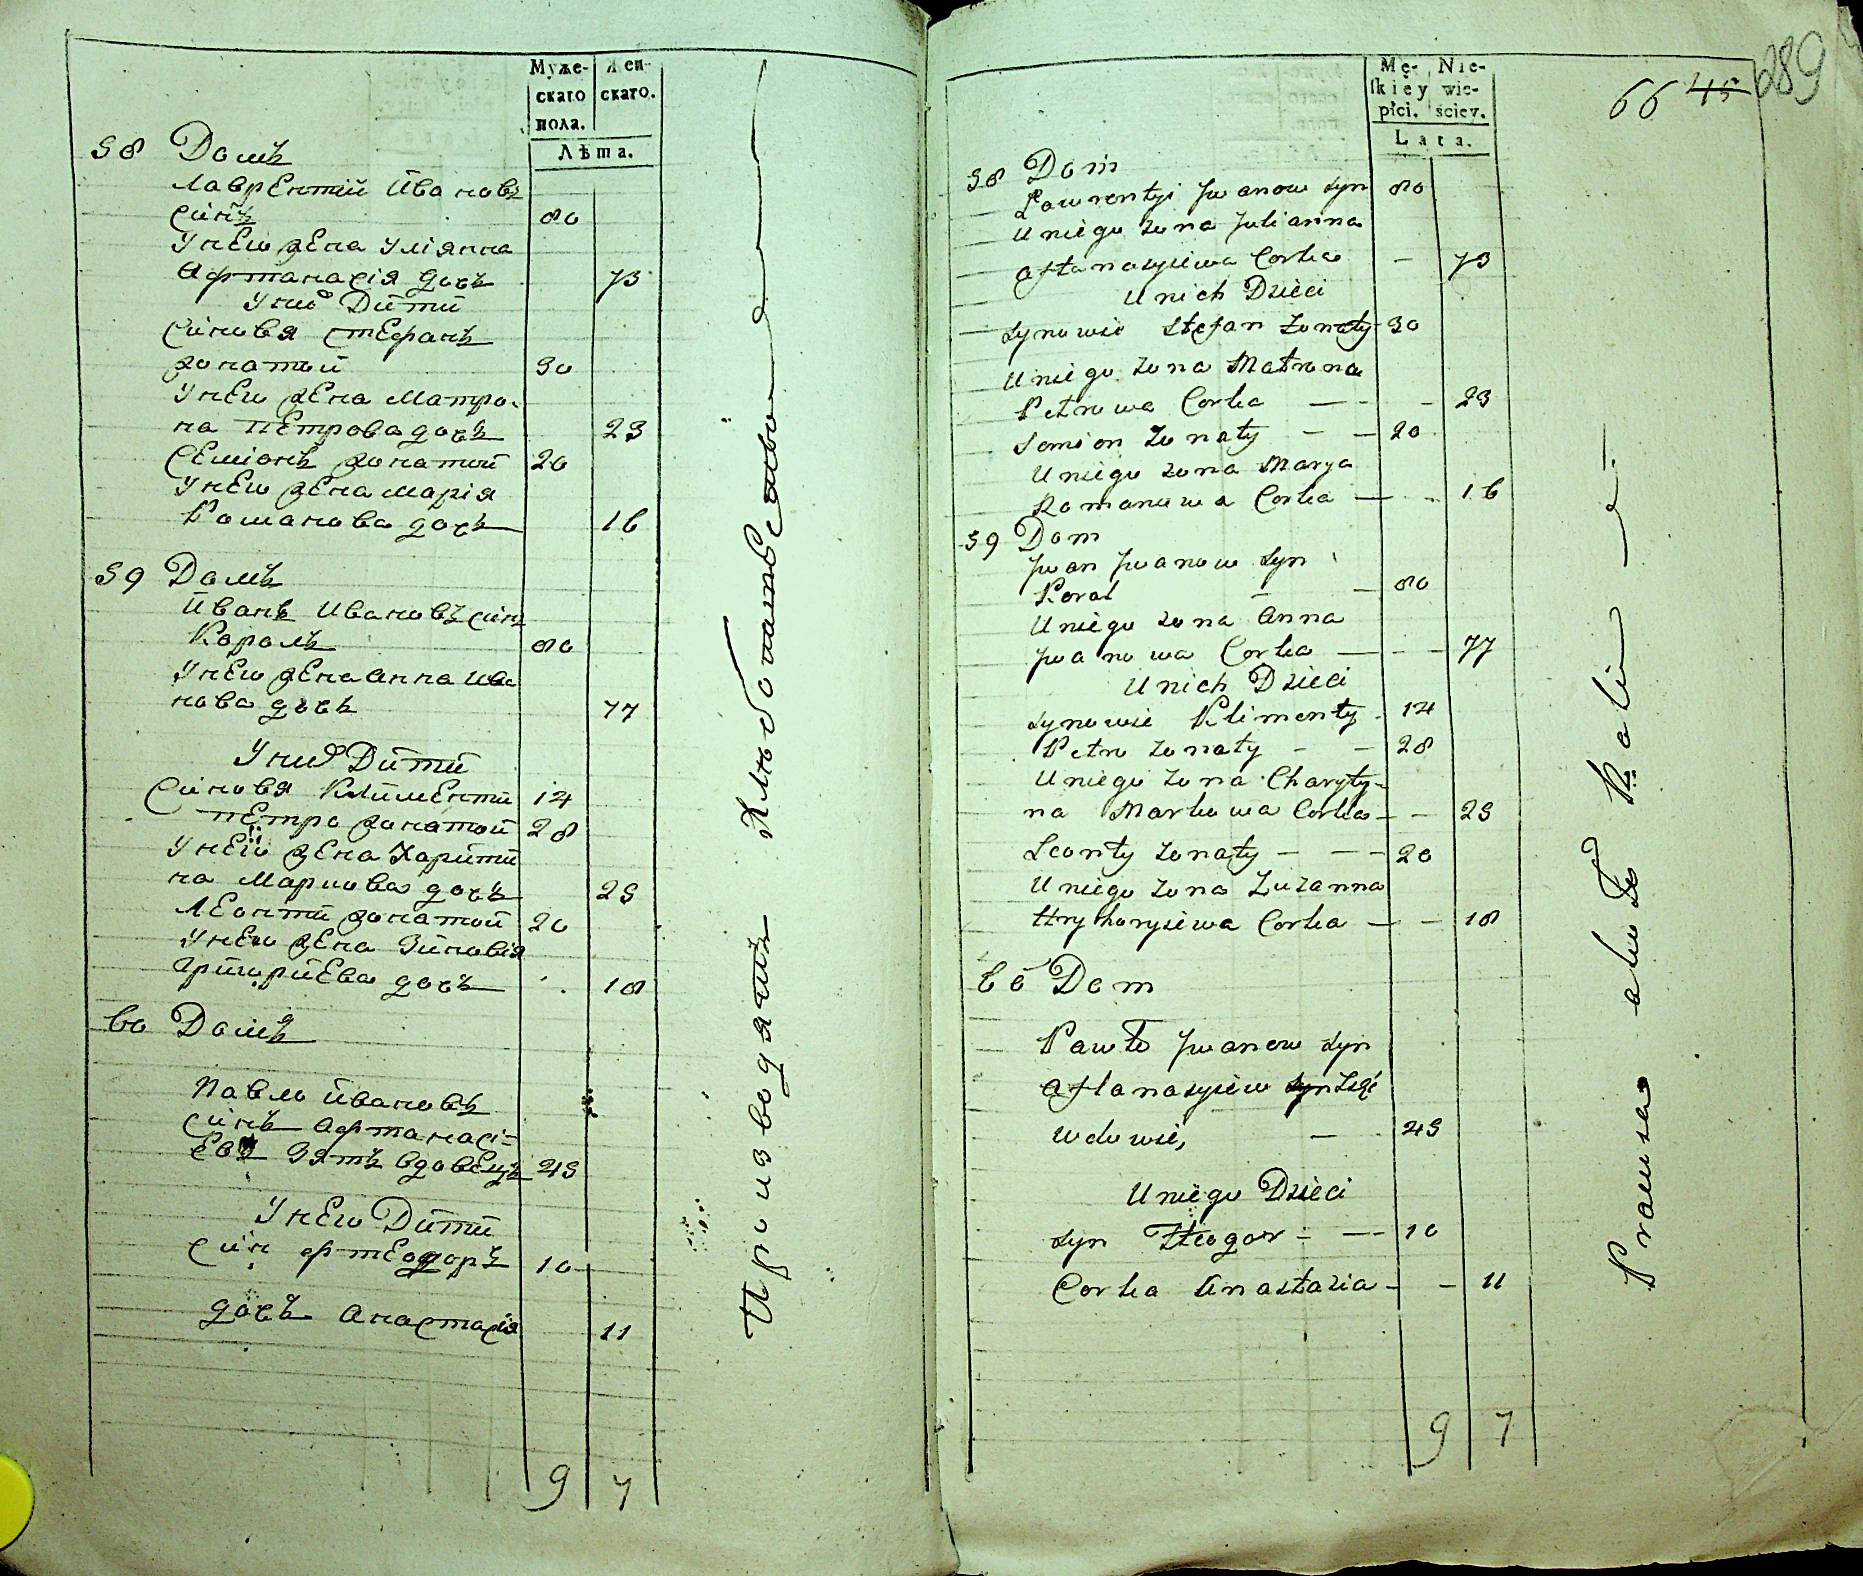 Муже- Жен-
скаго скаго.
пола.
Лѣта.
58 Домъ
Лаврентий Ивановъ
синъ 80
У него жена Улiянна
Афтанасiя дочь 73
У них Дити
Синовя Стефанъ
жонатый 30
У него жена Матро-
на Петрова дочь 23
Семiонъ жонатый 20
У него жена Марiя
Романова дочь 16
59 Домъ
Иванъ Ивановъ синъ
Король 80
У него жена Анна Ива
нова дочь 77
У них Дити
Синовя Клименти 14
Петро жонатый 28
У него жена Харити
на Маркова дочь 25
Леонти жонатый 20
У него жена Зиновiя
Григориева дочь 18
60 Домъ
Павло Ивановъ
синъ Афтанасi=
евъ Зять вдовецъ 45
У него Дити
Син Фтеодоръ 10
дочь Анастасiя 11
9 7
Производящъ Хлебопашество
289
66 45
Mę- Nie-
skiey wie-
płci. ściey.
Lata.
58 Dom
Lawrentyi Jwanow syn 80
U niego zona Julianna
Aftanasyiewa Corka – 73
U nich Dzieci
synowie Stefan zonaty 30
U niego zona Matrona
Petrowa Corka 23
Semion zonaty 20
U niego zona Marya
Romanowa Corka 16
59 Dom
Jwan Jwanow syn
Korol 80
U niego zona Anna
Jwanowa Corka 77
U nich Dzieci
synowie Klimenty 14
Petro zonaty 28
U niego zona Charyty-
na Markowa Corka 25
Leonty zonaty 20
U niego zona Zuzanna
Hryhoryiewa Corka 18
60 Dom
Pawło Jwanow syn
Aftanasyiew syn Zięć
wdowiec 45
U niego Dzieci
syn Fteodor 10
Corka Anastazia 11
9 7